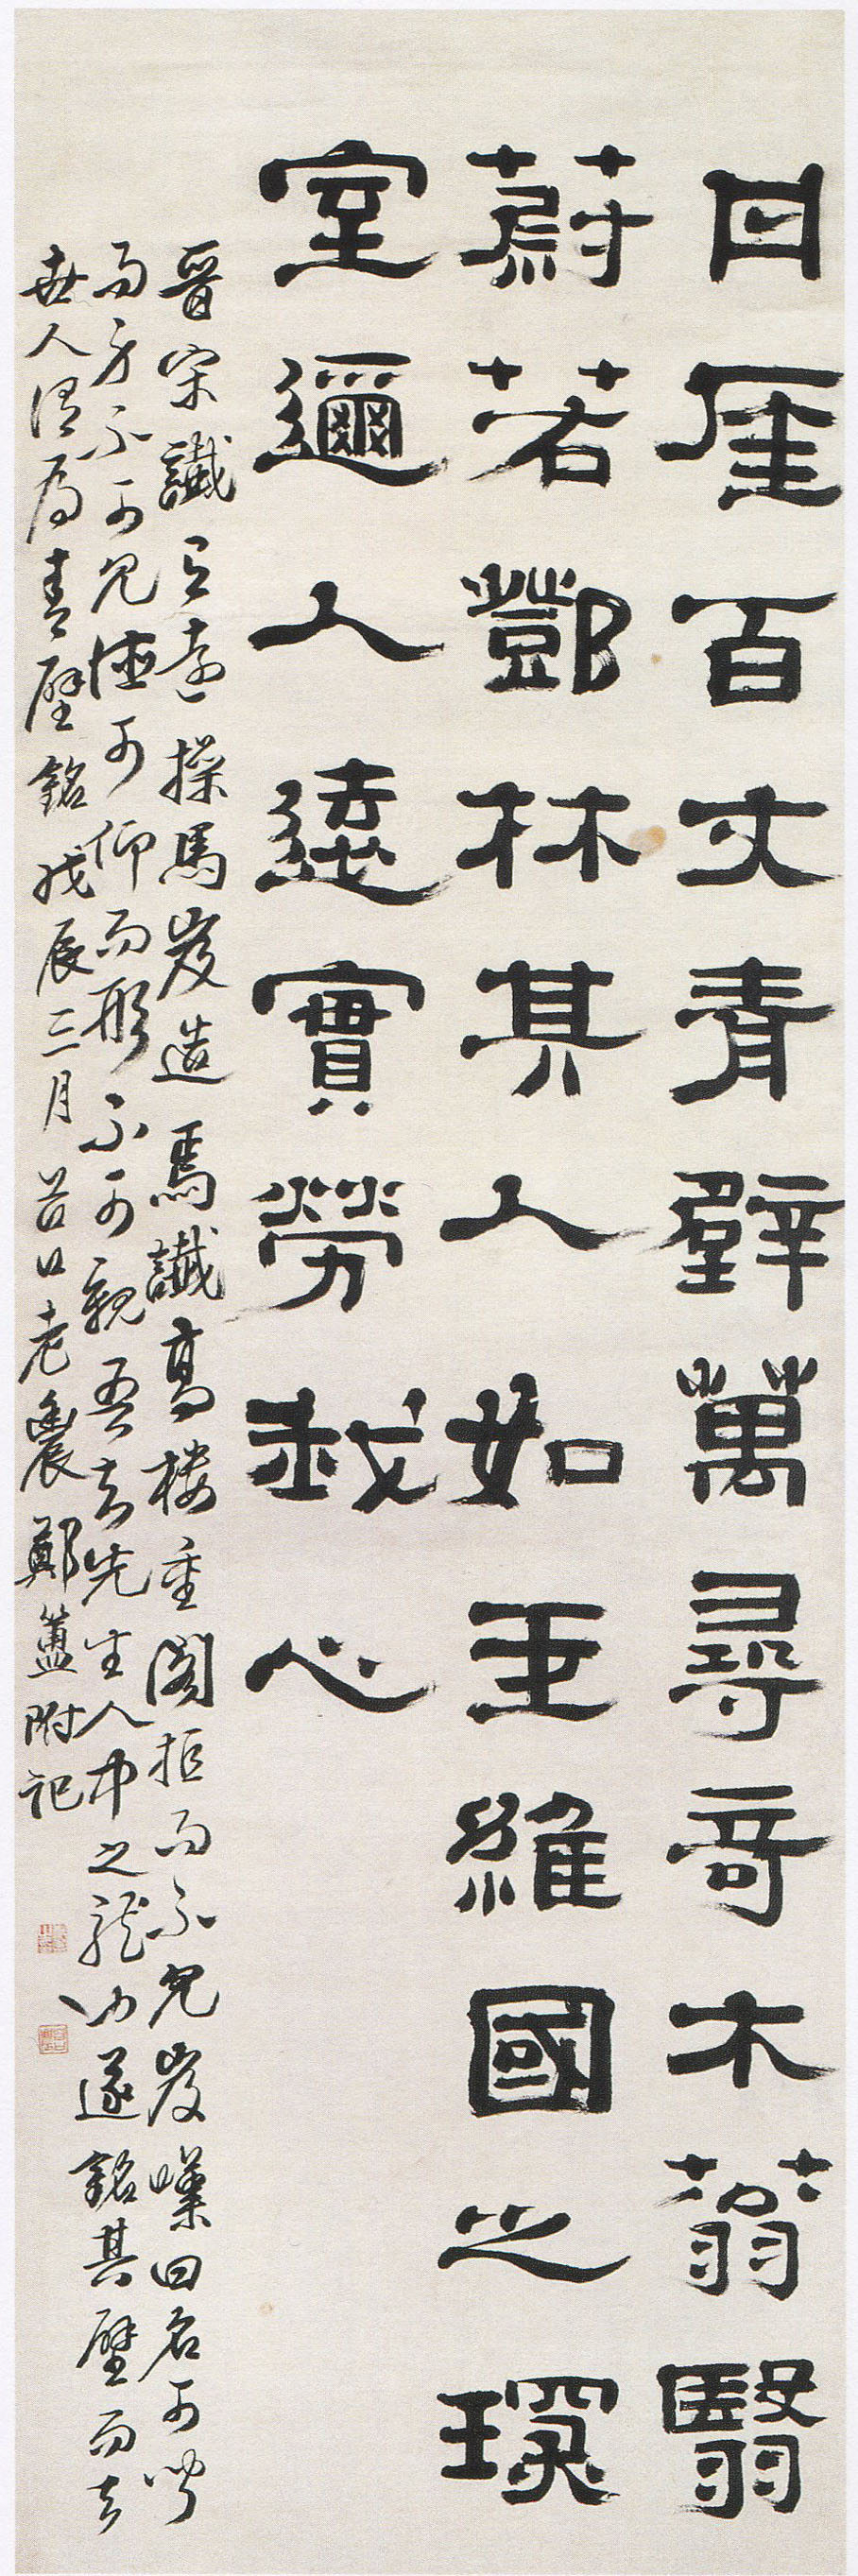 丹厓百丈青壁萬尋奇木蓊翳
蔚若鄧林其人如玉維國之琛
室邇人遠實勞我心
晉宋讖有遠操馬岌造焉讖高樓重閣拒而不見岌嘆曰名可聞
而身不可見德可仰而形不可親吾知先生人中之龍也遂銘其壁而去
世人謂為青壁銘戊辰三月谷口老農鄭簠附記